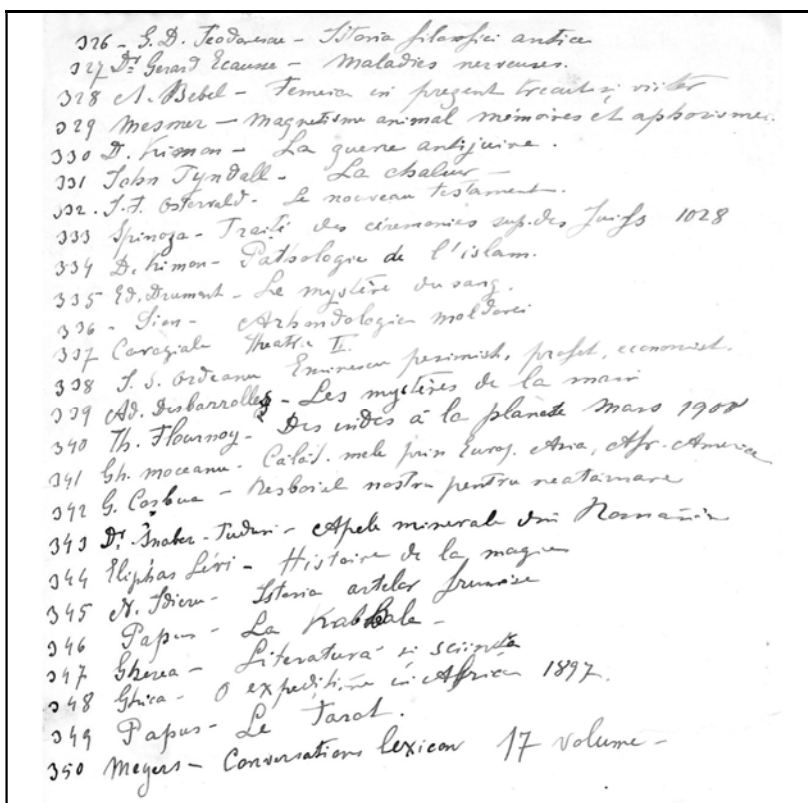 326 - G. D. Teodorescu - Istoria filosofiei antice
327 Dr Gerard Ecausse - Maladies nerveuses.
328 A. Bebel - Femeia in prezent trecut si viitor
329 Mesmer - Magnetisme animal mémoires et aphorismes.
330 D. Kimon - La guerre antijuive.
331 John Tyndall - La chaleur -
332. J. F. Osterwald - Le nouveau testament.
333 Spinoza - Traité des ceremonies sup. des Juifs 1028
334 D. Kimon - Patologie de l'islam.
335 Ed. Drumont - Le mystère du sang.
336 - Sion - Arhondologia moldovei
337 Caragiale Theatru II.
338 I. S. Ordeanu Eminescu pesimist, profet, economist.
339 Ad. Desbarrolles - Les mystères de la main
340 Th. Flournoy - Des indes à la planete Mars 1900
341 Gh. Moceanu - Călăt. mele prin Europ. Asia, Afr. America
342 G. Coşbuc - Resboiul nostru pentru neatârnare
343 Dr. Şnaber-Tuduri - Apele minerale din România
344 Eliphas Lévi - Histoire de la magie
345 N. Idieru - Istoria artelor frumose
346 Papus - La Kabbale -
347 Gherea - Literatură si sciinţa
348 Ghica - O expeditiune in Africa 1897.
349 Papus - Le Tarot.
350 Meyers - Conversations lexicon 17 volume -